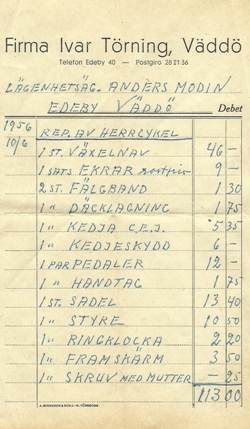 Firma Ivar Törning, Väddö
Telefon Edeby 40 — Postgiro 28 21 36
LÄGENHETSÄG. ANDERS MODIN
EDEBY VÄDDÖ Debet
1956
10/6 REP. AV HERRCYKEL
1 ST. VÄXELNAV 46 —
1 SATS EKRAR 9 —
2 ST. FÄLGBAND 1 30
1 " DÄCKLAGNING 1 75
1 " KEDJA C.E.J. 5 35
1 " KEDJESKYDD 6 —
1 PAR PEDALER 12 —
1 " HANDTAG 1 75
1 ST. SADEL 13 40
1 " STYRE 10 50
1 " RINGKLOCKA 2 20
1 " FRAMSKÄRM 3 50
1 " SKRUV MED MUTTER — 25
113 00